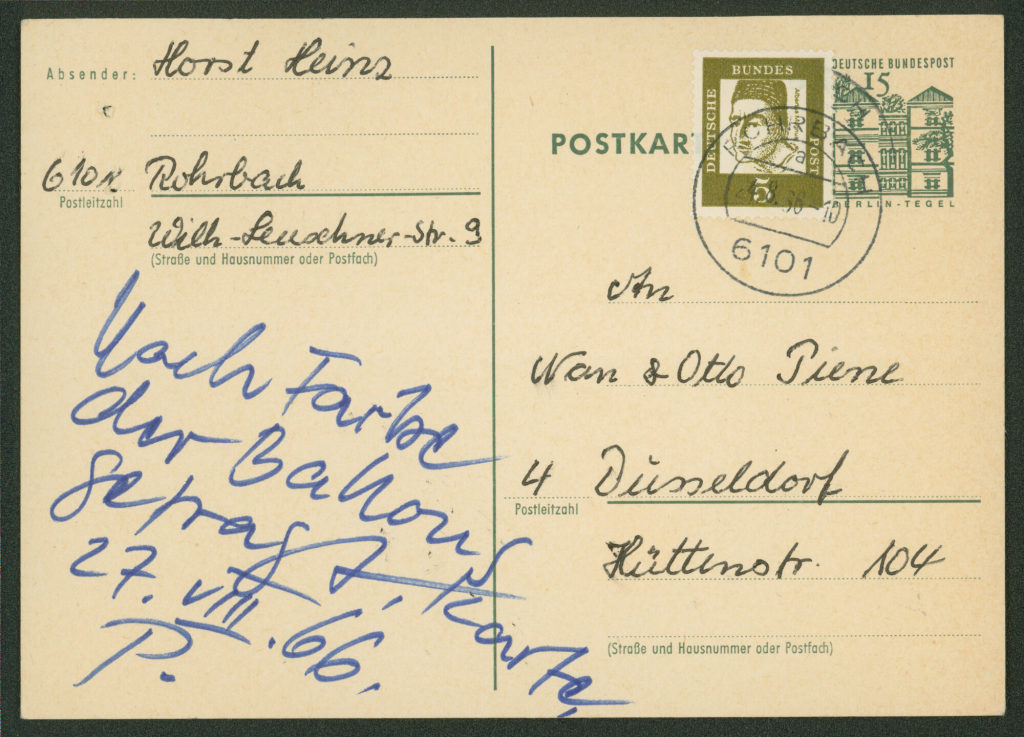 Absender: Horst Heinz
6101 Rohrbach
Postleitzahl
Wilh-Leuschner-Str. 9
(Straße und Hausnummer oder Postfach)
Nach Farbe
der Ballons
gefragt, Karte
27. VIII. 66.
P.
POSTKAR
DEUTSCHE BUNDES POST
5
DEUTSCHE BUNDESPOST
15
BERLIN-TEGEL
6101
An
Nan & Otto Piene
4 Düsseldorf
Postleitzahl
Hüttenstr. 104
(Straße und Hausnummer oder Postfach)